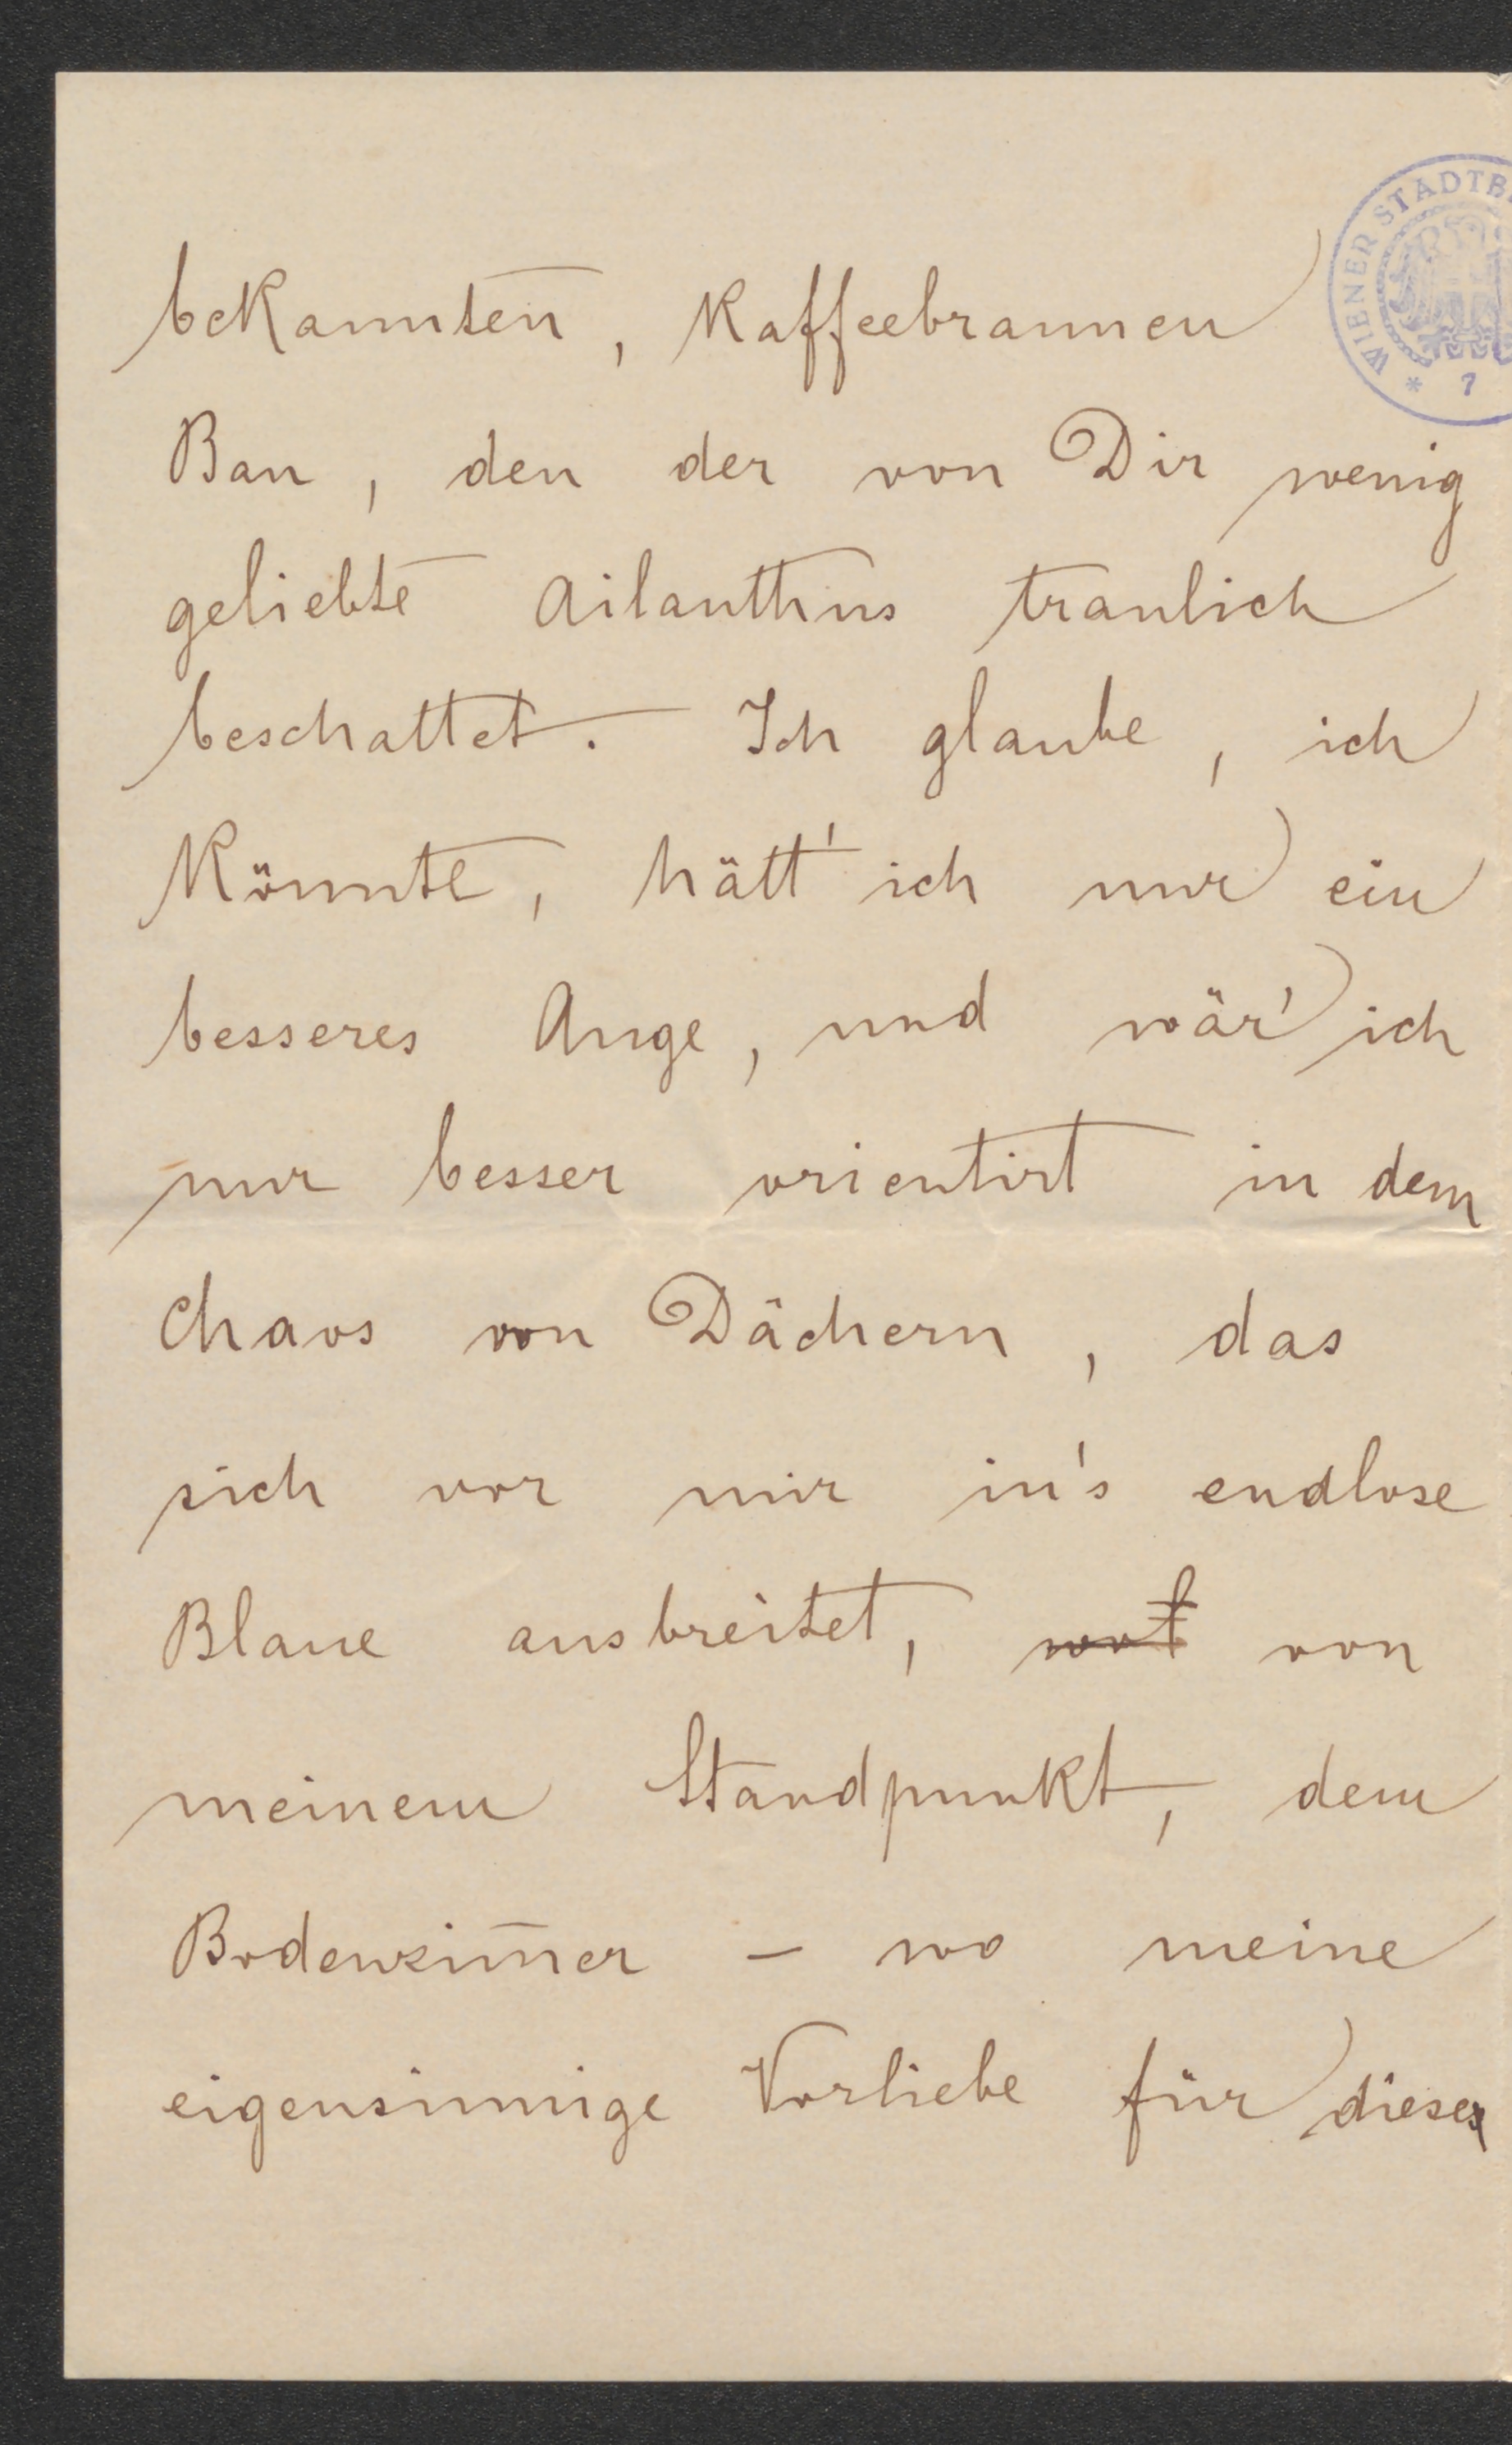 WIENER STADTB
* 7
bekannten, kaffeebraunen
Bau, den der von Dir wenig
geliebte Ailanthus traulich
beschattet. Ich glaube, ich
könnte, hätt' ich nur ein
besseres Auge, und wär' ich
nur besser orientirt in dem
Chaos von Dächern, das
sich vor mir in's endlose
Blaue ausbreitet, von
meinem Standpunkt, dem
Bodenzim̄er – wo meine
eigensinnige Vorliebe für dieses